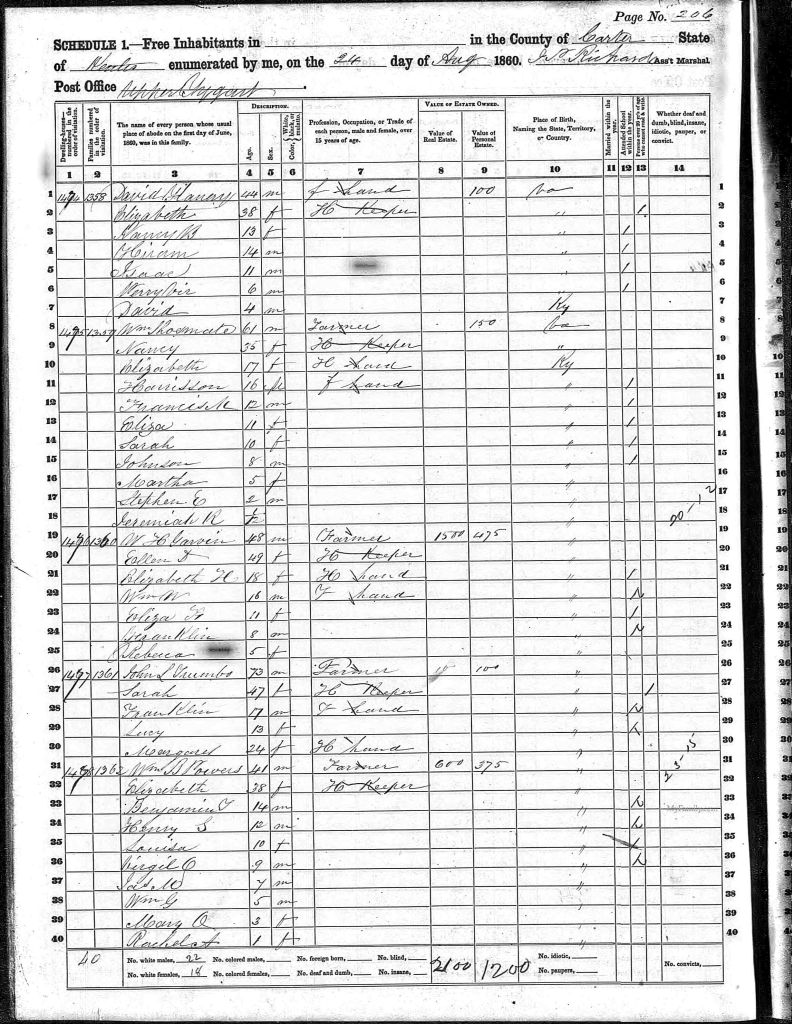 Page No. 206
SCHEDULE 1.—Free Inhabitants in in the County of Carter State
of enumerated by me, on the 24 day of Aug 1860. Ass't Marshal
Post Office
Dwelling-houses numbered in the order of visitation.
Families numbered in the order of visitation.
The name of every person whose usual place of abode on the first day of June, 1860, was in this family.
DESCRIPTION.
Age.
Sex.
Color, White, black, or mulatto.
Profession, Occupation, or Trade of each person, male and female, over 15 years of age.
VALUE OF ESTATE OWNED.
Value of Real Estate.
Value of Personal Estate.
Place of Birth, Naming the State, Territory, or Country.
Married within the year.
Attended School within the year.
Whether deaf and dumb, blind, insane, idiotic, pauper, or convict.
1 2 3 4 5 6 7 8 9 10 11 12 13 14
1 1474 1358 David 44 m f hand 100 va 1
2 Elizabeth 38 f H Keeper " / 2
3 Nancy B 13 f " / 3
4 Hiram 14 m " / 4
5 Isaac 11 m " / 5
6 6 m " / 6
7 David 4 m Ky 7
8 1475 1359 Wm Shoemate 61 m Farmer 150 va 8
9 Nancy 35 f H Keeper " 9
10 Elizabeth 17 f H hand Ky 10
11 Harrisson 16 m f hand " / 11
12 Francis M 12 m " / 12
13 Eliza 11 f " / 13
14 Sarah 10 f " / 14
15 Johnson 8 m " / 15
16 Martha 5 f " 16
17 Stephen C 2 m " 17
18 Jeremiah R " 20-12 18
19 1476 1360 W H 48 m Farmer 1500 475 " 19
20 Ellen D 49 f H Keeper " 20
21 Elizabeth H 18 f H hand " / 21
22 Wm W 16 m F hand " 22
23 Eliza 11 f " / 23
24 Franklin 8 m " 24
25 Rebecca 5 f " 25
26 1477 1361 John L Trumbo 73 m Farmer 100 " 26
27 Sarah 47 f H Keeper " / 27
28 Franklin 17 m F hand " 28
29 Lucy 13 f " 29
30 Margaret 24 f H hand " 30
31 1478 1362 Wm B Powers 41 m Farmer 600 375 " 25-15 31
32 Elizabeth 38 f H Keeper " 32
33 Benjamin F 14 m " 33
34 Henry S 12 m " 34
35 Louisa 10 f " 35
36 Virgil C 9 m " 36
37 Jas M 7 m " 37
38 Wm G 5 m " 38
39 Mary O 3 f " 39
40 Rachel A 1 f " 40
40 No. white males, 22 No. colored males, No. foreign born, No. blind, 2100 1200 No. idiotic, No. convicts,
No. white females, 18 No. colored females, No. deaf and dumb, No. insane, No. paupers,